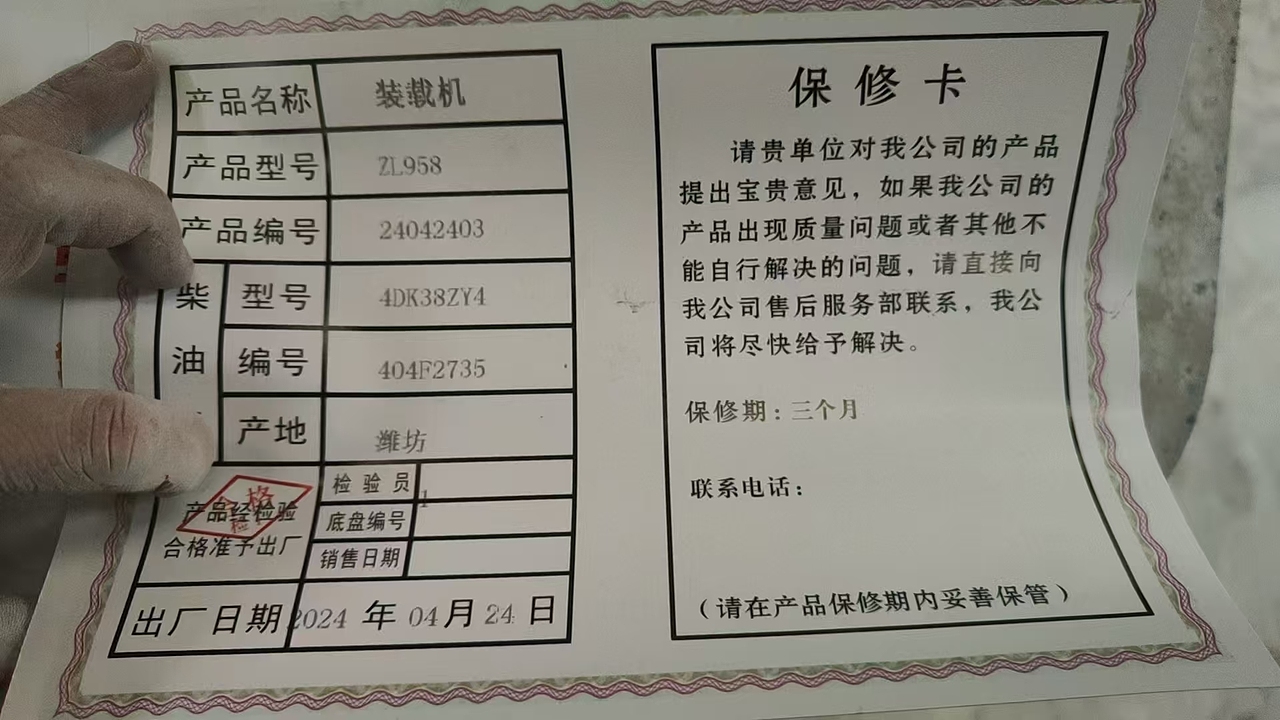 产品名称 装载机
产品型号 ZL958
产品编号 24042403
柴油
型号 4DK38ZY4
编号 404F2735
产地 潍坊
合格
检
产品经检验
合格准予出厂
检验员 1
底盘编号
销售日期
出厂日期 2024 年 04 月 24 日
保修卡
请贵单位对我公司的产品
提出宝贵意见，如果我公司的
产品出现质量问题或者其他不
能自行解决的问题，请直接向
我公司售后服务部联系，我公
司将尽快给予解决。
保修期：三个月
联系电话：
（请在产品保修期内妥善保管）